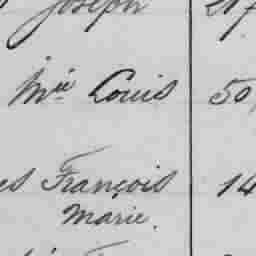 Joseph
Mie Louis 50
es François 14
Marie.